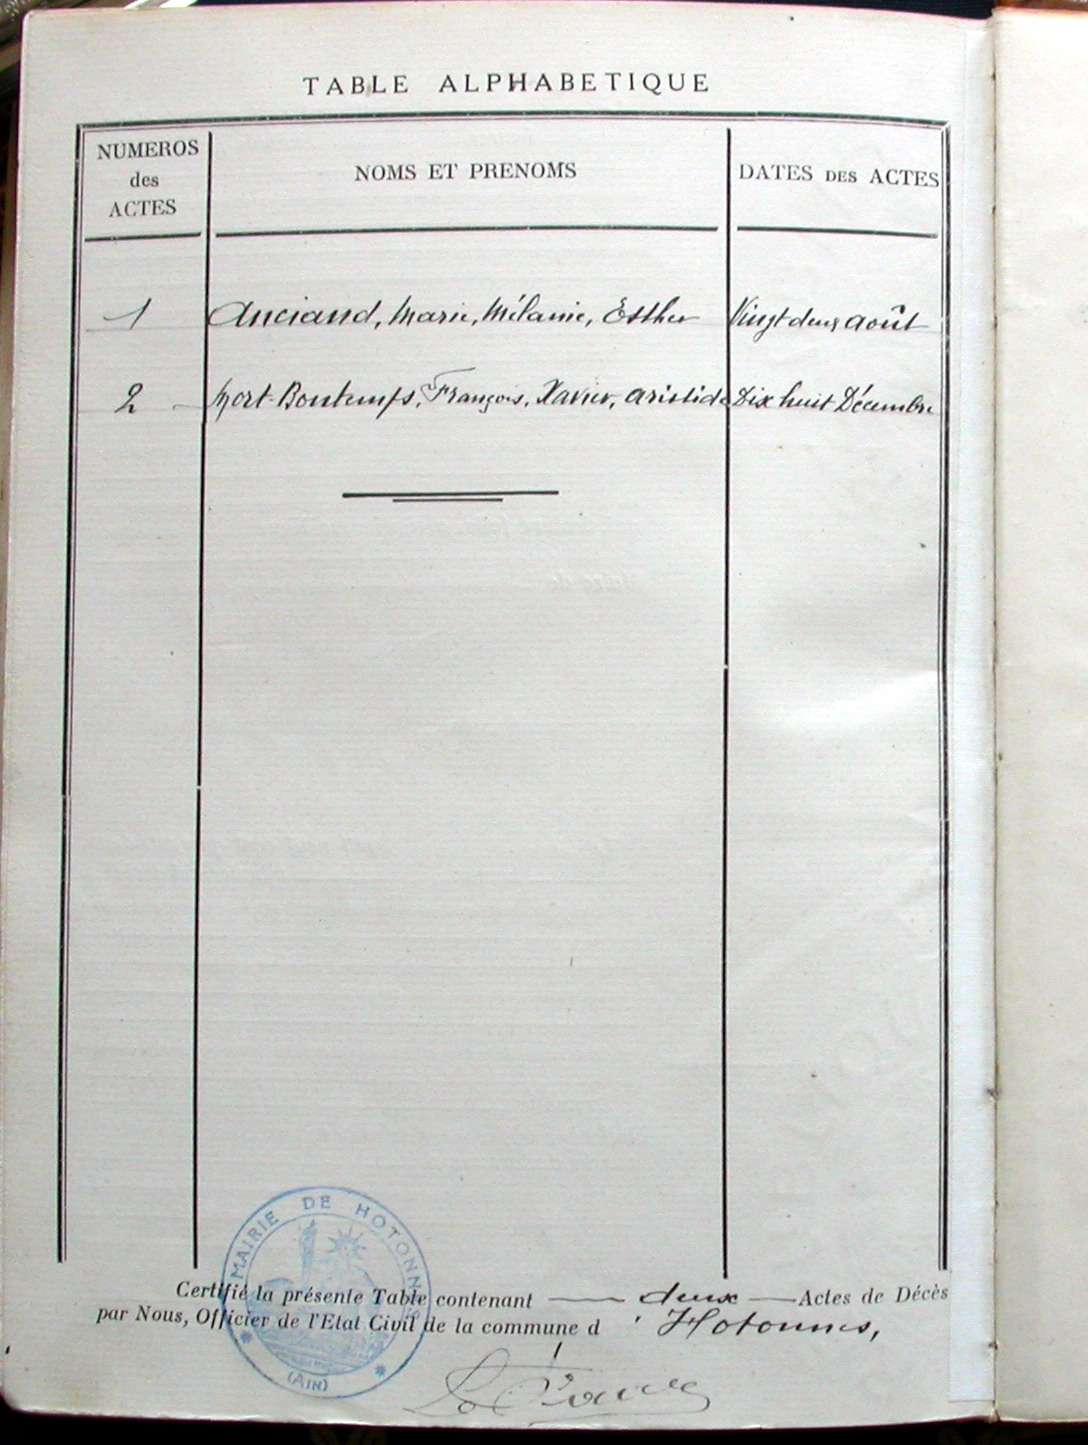 TABLE ALPHABETIQUE
NUMEROS
des
ACTES
NOMS ET PRENOMS
DATES DES ACTES
1 Anciand, Marie, Mélanie, Esther Vingt deux août
2 Mort-Bontemps, François, Xavier, Aristide Dix huit Décembre
MAIRIE DE HOTONNES
(AIN)
Certifié la présente Table contenant deux Actes de Décès
par Nous, Officier de l'Etat Civil de la commune d'Hotonnes,